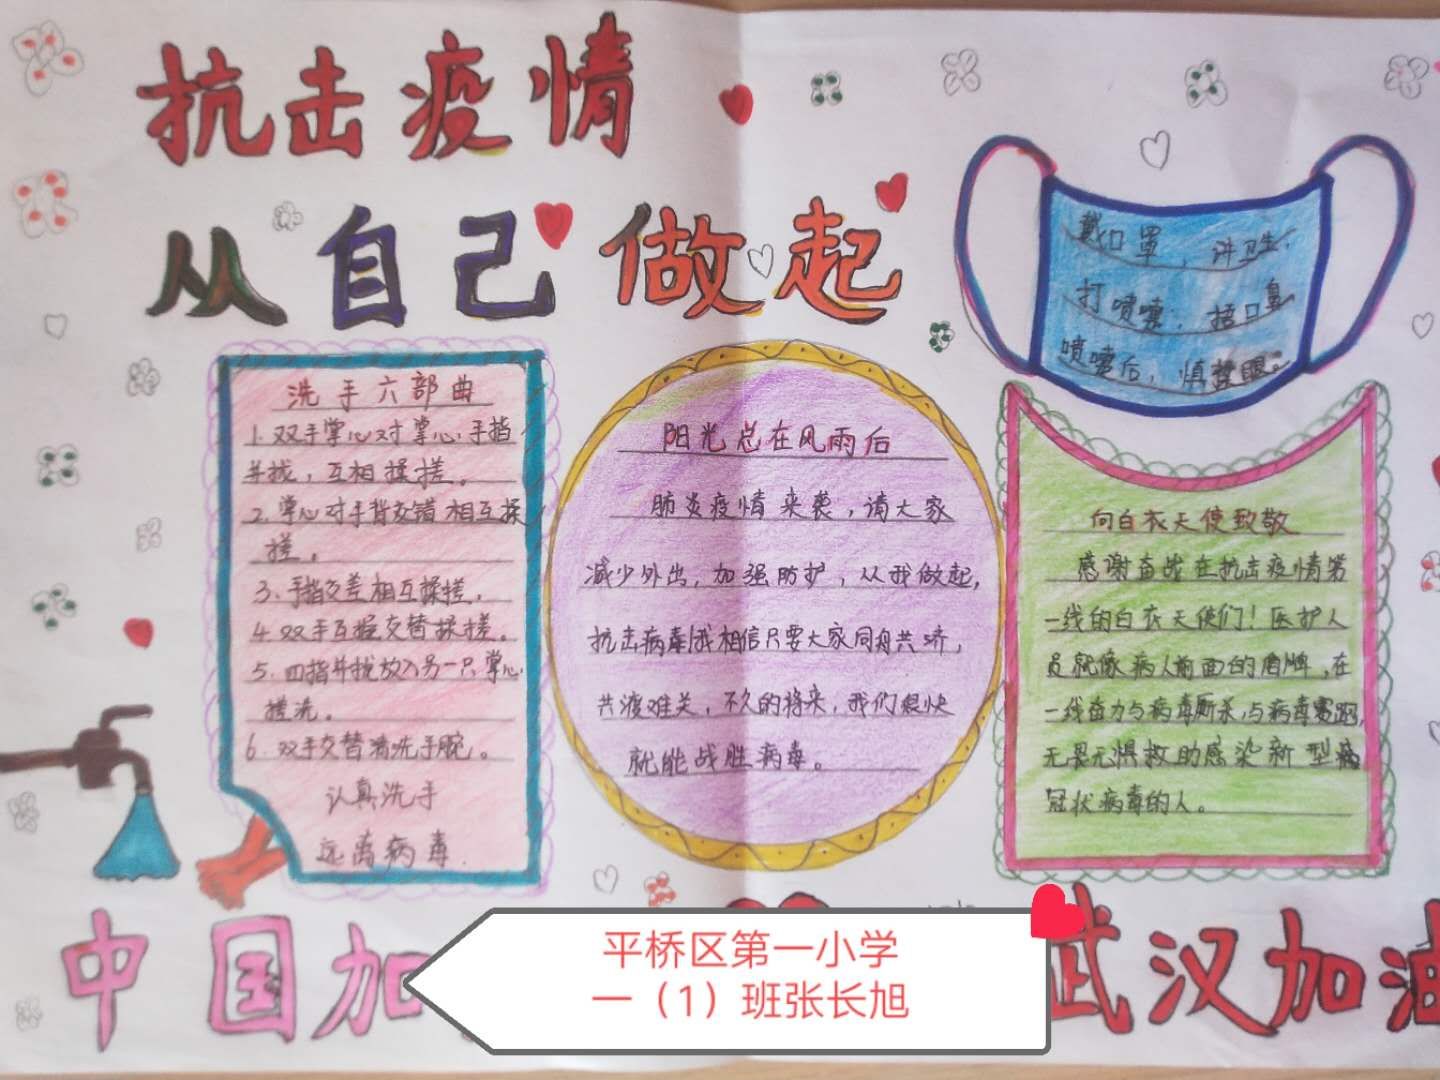 抗击疫情
从自己做起
戴口罩，讲卫生，
打喷嚏，捂口鼻
喷嚏后，慎揉眼。
洗手六部曲
1. 双手掌心对掌心，手指
并拢，互相揉搓。
2. 掌心对手背交错相互揉
搓。
3. 手指交差相互揉搓。
4. 双手互握交替揉搓。
5. 四指并拢放入另一只掌心，
搓洗。
6. 双手交替清洗手腕。
认真洗手
远离病毒.
阳光总在风雨后
肺炎疫情来袭，请大家
减少外出，加强防护，从我做起，
抗击病毒！我相信只要大家同舟共济，
共渡难关，不久的将来，我们很快
就能战胜病毒。
向白衣天使致敬
感谢奋战在抗击疫情第
一线的白衣天使们！医护人
员就像病人前面的盾牌，在
一线奋力与病毒厮杀，与病毒赛跑，
无畏无惧救助感染新型
冠状病毒的人。
中国加
武汉加油
平桥区第一小学
一（1）班张长旭